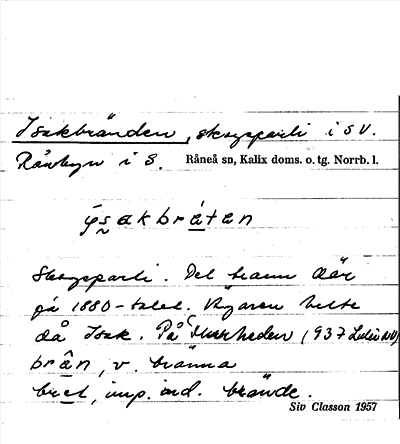 Isakbränden, skogsparti i SV.
Rånbyn i S. Råneå sn, Kalix doms. o. tg. Norrb. l.
Skogsparti. Det brann där
på 1880-talet. Ägaren hette
då Isak. På (937 Luleå NV)
brân, v. bränna
bret, imp. ind. brände.
Siv Classon 1957